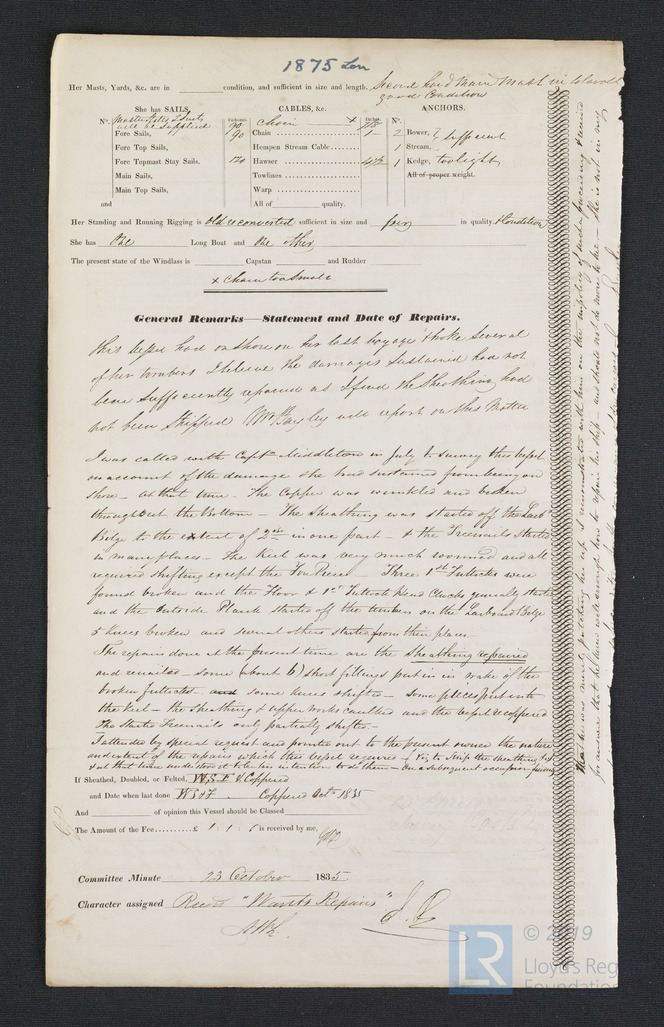 1875 Lon
Her Masts, Yards, &c. are in condition, and sufficient in size and length. Second hand Main Mast in
good Condition
She has SAILS.
CABLES, &c.
ANCHORS.
Nº.
Fathoms.
Inches.
Nº.
will be supplied
90
Chain x
Fore Sails,
90
Chain
1
2 Bower,
Fore Top Sails,
Hempen Stream Cable
1 Stream,
Fore Topmast Stay Sails,
120
Hawser
1 Kedge, too light
Main Sails,
Towlines
All of proper weight.
Main Top Sails,
Warp
and
All of quality.
Her Standing and Running Rigging is old reconverted sufficient in size and fair in quality. & Condition
She has One Long Boat and One other
The present state of the Windlass is Capstan and Rudder
x Chain too Small
General Remarks—Statement and Date of Repairs.
This Vessel had on shore on her last Voyage broke several
of her timbers I believe the damages sustained had not
been sufficiently repaired as I find the Sheathing had
not been stripped Mr Bayley will report on this Matter
I was called with Capt Middleton in July to survey this Vessel
on account of the damage she had sustained from being on
shore - At that time - The Copper was wrinkled and broken
throughout the Bottom - The Sheathing was started off the Larb
Bilge to the extent of 2 in in one part - & the Treenails started
in many places - The Keel was very much wounded and all
required shifting except the Fore Piece - Three 1st Futtocks were
found broken and the Floor & 1st Futtock Head Chocks generally started
and the Outside Plank started off the timbers on the Larboard Bilge
5 Knees broken and several others started from their places
The repairs done at the present time are the Sheathing repaired
and renailed - some (about 6) short fillings put in in wake of the
broken Futtocks some knees shifted - Some pieces put into
the Keel - the Sheathing & upper works caulked and the Vessel recoppered
The started Treenails only partially shifted -
I attended by special request and pointed out to the present owner the nature
and extent of the repairs which this Vessel required - Viz to Strip the Sheathing &c
& at that time understood it to be his intention to do them - On a subsequent occasion finding
If Sheathed, Doubled, or Felted, W.S.F. & Coppered
and Date when last done W S & F. Coppered Octr 1835
And of opinion this Vessel should be Classed
The Amount of the Fee £ 1 : 1 : is received by me,
Committee Minute 23 October 1835.
Character assigned Recd "Wants Repairs"
that he was merely patching her up I remonstrated with him on the impolicy of such proceeding & received
for answer that he knew well enough how to repair his ship - and should not do more to her - She is not in my
LR
© 2019
Lloyd's Reg
Foundation